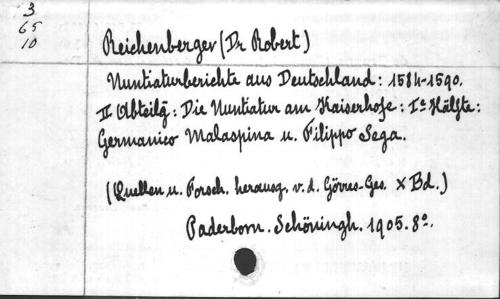 3
65
10
Reichenberger (Dr Robert)
Nuntiaturberichte aus Deutschland: 1584-1590.
II Abteilg: Die Nuntiatur am Kaiserhofe: Ie Hälfte:
Germanico Malaspina u. Filippo Sega.
(Quellen u. Forsch. herausg. v. d. Görres-Ges. X Bd.)
Paderborn. Schöningh. 1905. 8º.